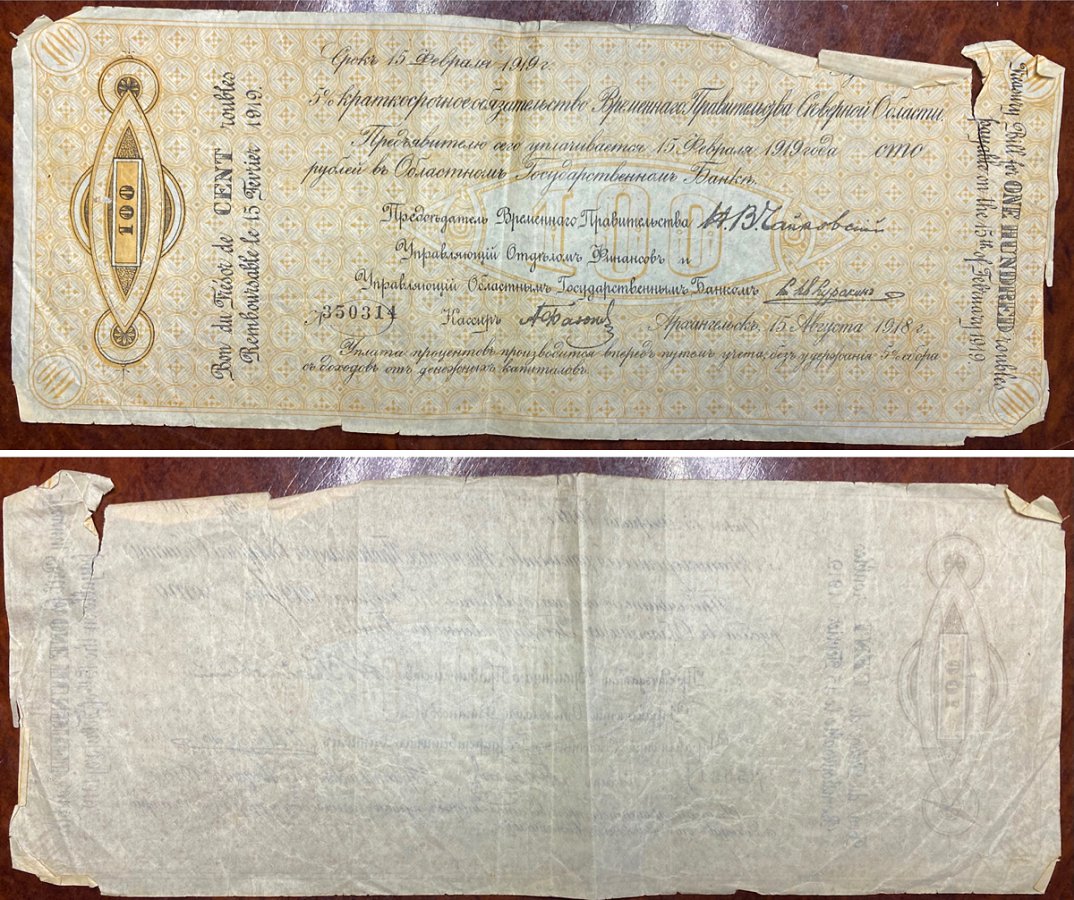 Срокъ 15 Февраля 1919 г.
5% краткосрочное обязательство Временнаго Правительства Сѣверной Области.
Предъявителю сего уплачивается 15 Февраля 1919 года сто
рублей въ Областномъ Государственномъ Банкѣ.
100
Предсѣдатель Временнаго Правительства Н.В.Чайковский
Управляющій Отдѣломъ Финансовъ и
Управляющій Областнымъ Государственнымъ Банкомъ
350314 Кассиръ Архангельскъ, 15 Августа 1918 г.
Уплата процентовъ производится впередъ путемъ учета, безъ удержания 5% сбора
съ доходовъ отъ денежныхъ капиталовъ.
100
Bon du Trésor de CENT roubles
Remboursable le 15 Fevrier 1919.
Treasury Bill for ONE HUNDRED roubles
payable on the 15th of February 1919